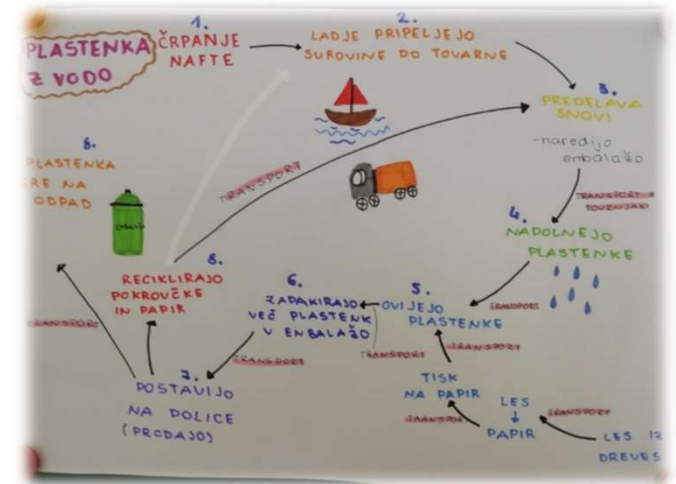 PLASTENKA
Z VODO
1.
ČRPANJE
NAFTE
2.
LADJE PRIPELJEJO
SUROVINE DO TOVARNE
3.
PREDELAVA
SNOVI
-naredijo
embalažo
TRANSPORT
4.
NADOLNEJO
PLASTENKE
TRANSPORT
5.
OVIJEJO
PLASTENKE
TRANSPORT
TISK
NA PAPIR
TRANSPORT
LES
PAPIR
TRANSPORT
LES IZ
DREVES
TRANSPORT
6.
ZAPAKIRAJO
VEČ PLASTENK
V ENBALAŽO
TRANSPORT
7.
POSTAVIJO
NA POLICE
(PRODAJO)
8.
RECIKLIRAJO
POKROVČKE
IN PAPIR
TRANSPORT
8.
PLASTENKA
GRE NA
ODPAD
TRANSPORT